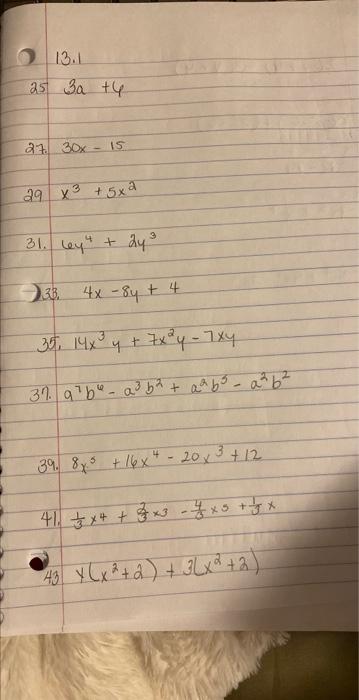 13.1
25 3a + 6
27. 30x - 15
29 x³ + 5x²
31. 6y⁴ + 2y³
33. 4x - 8y + 4
35. 14x³y + 7x²y - 7xy
37. a⁷b⁶ - a³b² + a²b⁵ - a²b²
39. 8x⁵ + 16x⁴ - 20x³ + 12
41. 1/3 x4 + 2/3 x3 - 4/3 x5 + 1/3 x
43 y(x² + 2) + 3(x² + 2)